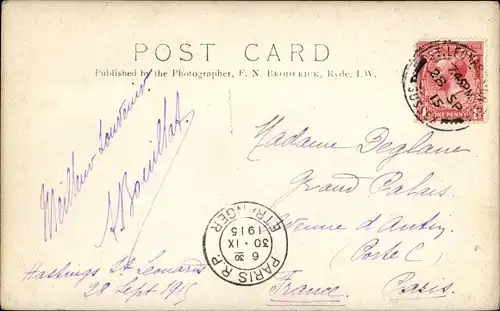 POST CARD
Published by the Photographer, F. N. BRODERICK, Ryde, I.W.
ST. LEONARDS ON SEA
7.45PM
28 SP
15
SUSSEX
ONE PENNY
Meilleur souvenir
A Bouillat.
Hastings St Leonards
28 Sept 1915
Madame Deglane
Grand Palais
Avenue d'Antin
(Porte C)
France. Paris.
PARIS R.P.
6 30
30 · IX
1915
ETRANGER